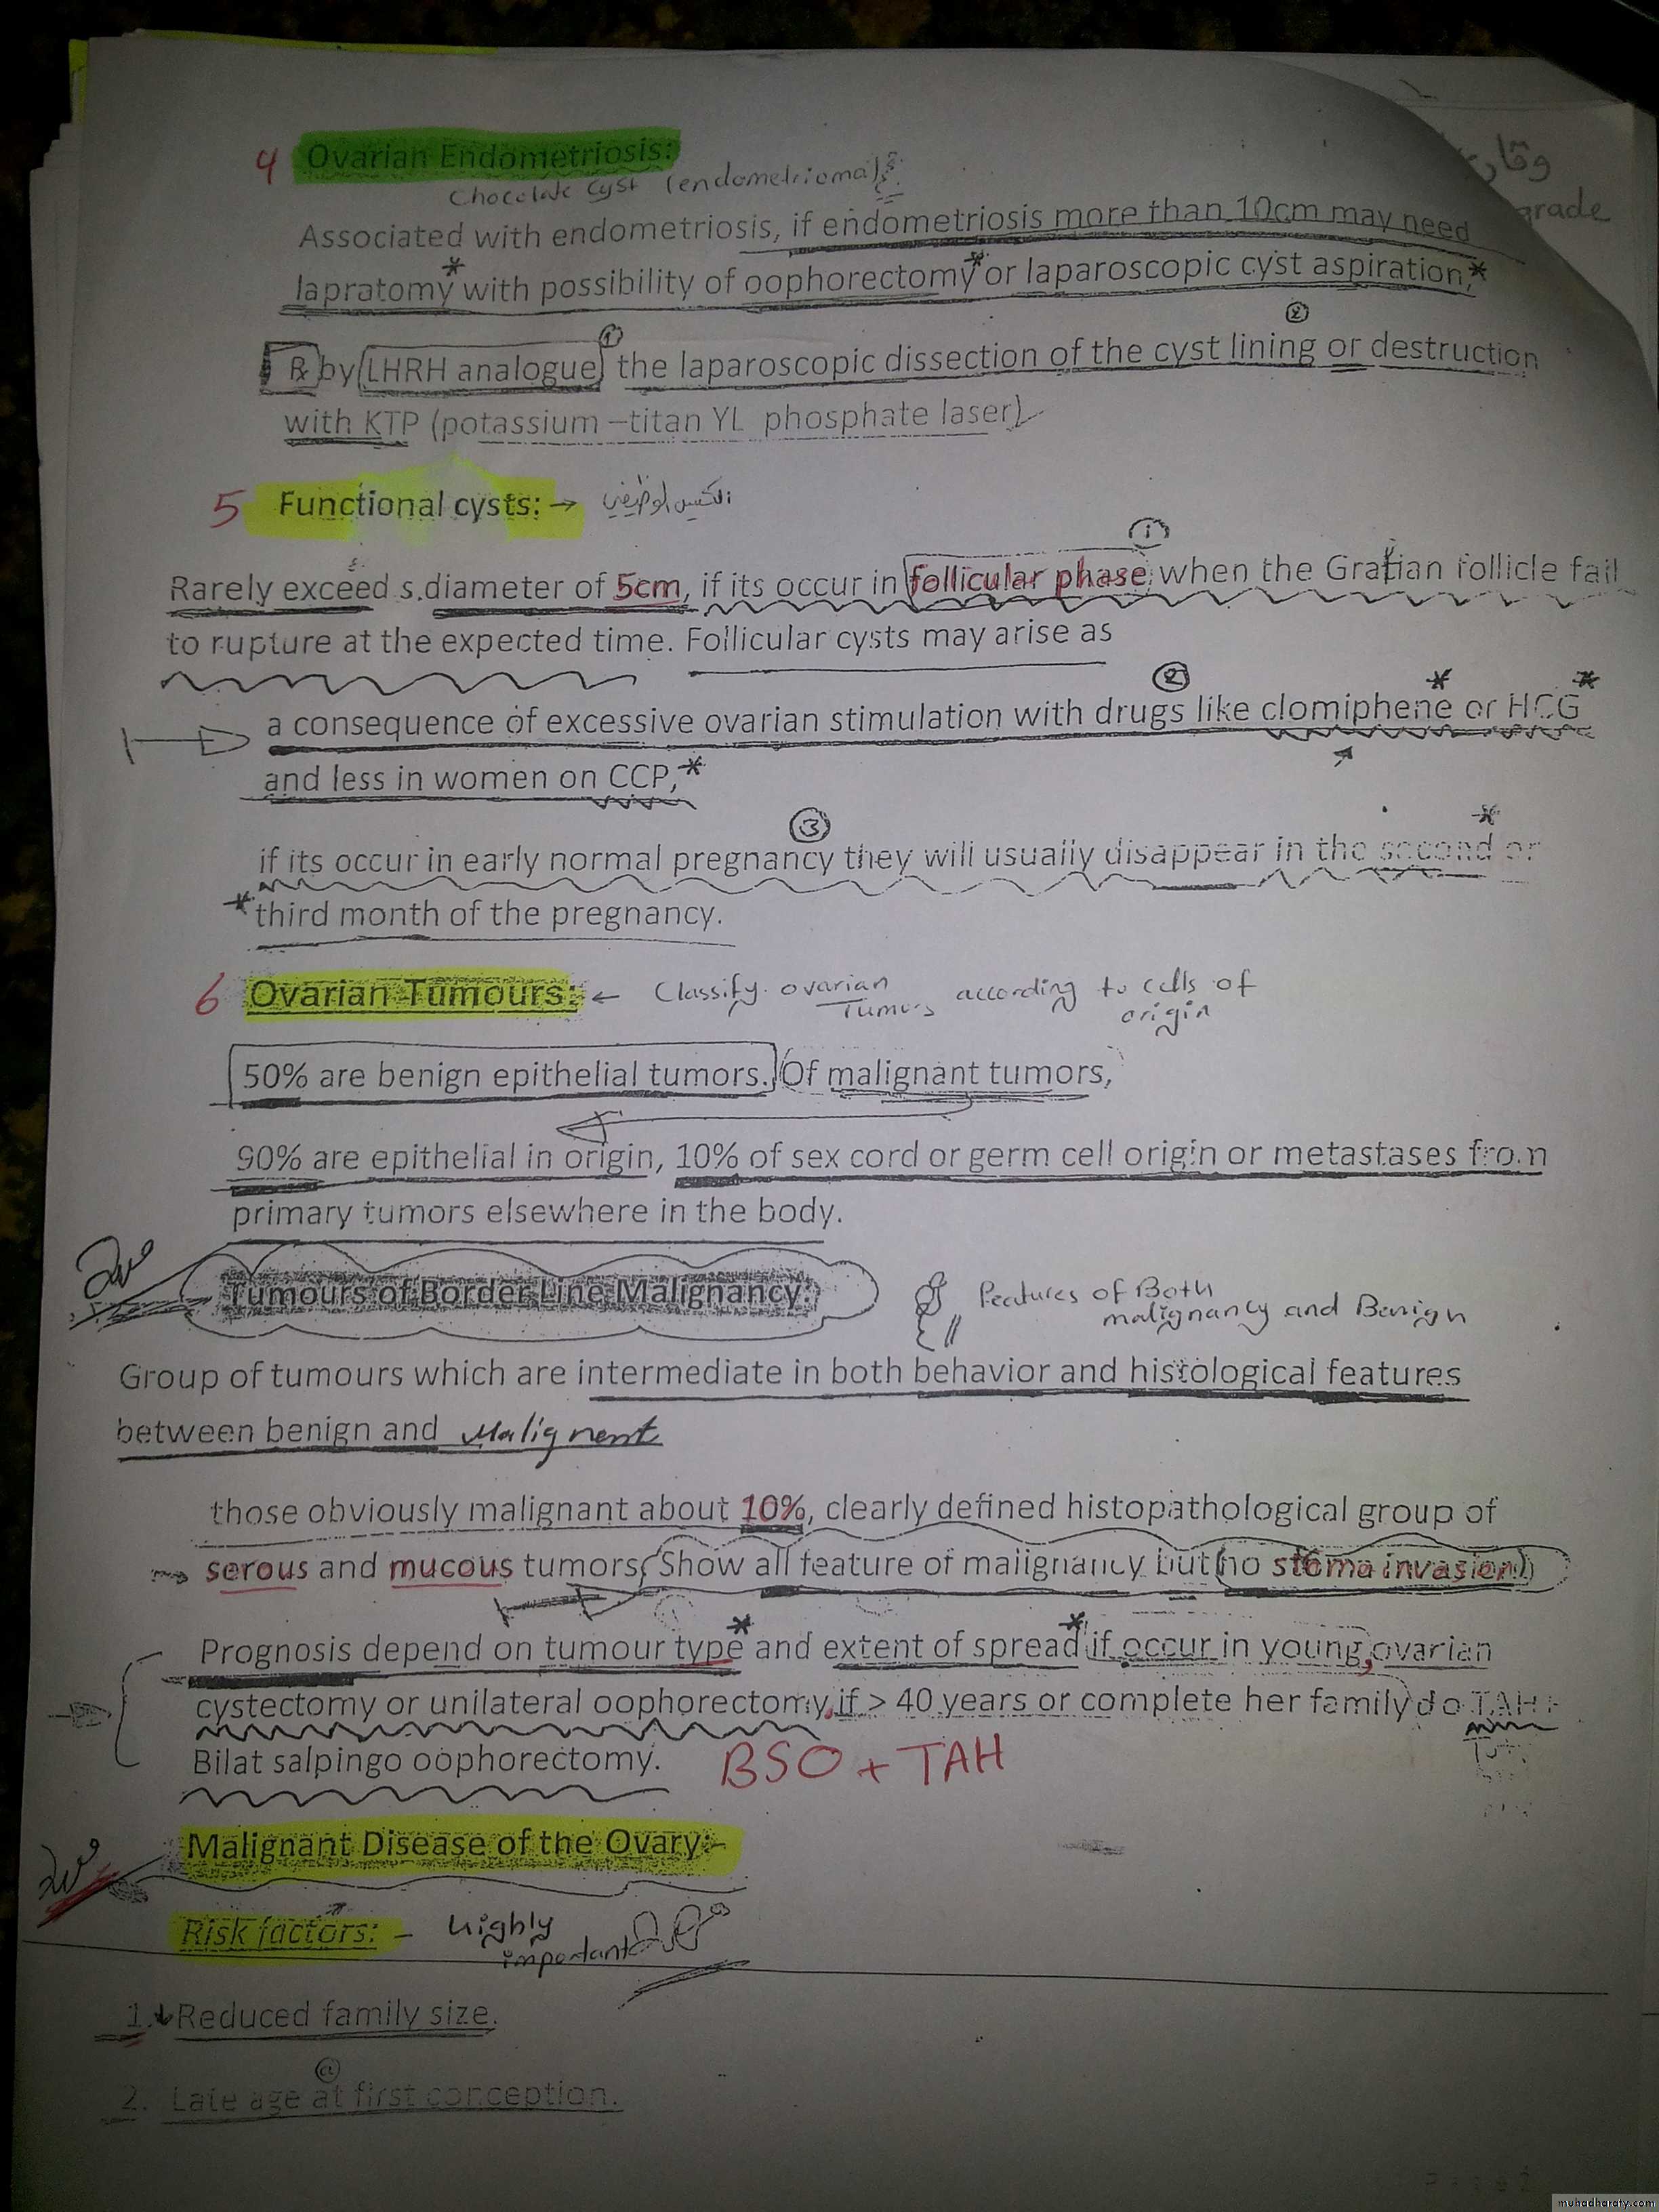 4 Ovarian Endometriosis:
Chocolate Cyst (endometrioma)
grade
Associated with endometriosis, if endometriosis more than 10cm may need
lapratomy* with possibility of oophorectomy* or laparoscopic cyst aspiration,*
℞ by LHRH analogue ① the laparoscopic dissection of the cyst lining ② or destruction
with KTP (potassium –titan YL phosphate laser)
5 Functional cysts: → الكيس الوظيفي
Rarely exceed s.diameter of 5cm, if its occur in follicular phase ① when the Grafian follicle fail
to rupture at the expected time. Follicular cysts may arise as
a consequence of excessive ovarian stimulation with drugs ② like clomiphene* or HCG*
and less in women on CCP,*
if its occur in early normal pregnancy ③ they will usually disappear in the second* or
*third month of the pregnancy.
6 Ovarian Tumours: ← Classify ovarian Tumors according to cells of origin
50% are benign epithelial tumors. Of malignant tumors,
90% are epithelial in origin, 10% of sex cord or germ cell origin or metastases from
primary tumors elsewhere in the body.
Tumours of Border Line Malignancy:
Features of Both
malignancy and Benign
Group of tumours which are intermediate in both behavior and histological features
between benign and Malignent
those obviously malignant about 10%, clearly defined histopathological group of
serous and mucous tumors, Show all feature of malignancy but (no stoma invasion)
Prognosis depend on tumour type* and extent of spread* if occur in young, ovarian
cystectomy or unilateral oophorectomy, if > 40 years or complete her family do TAH +
Bilat salpingo oophorectomy. BSO + TAH
Malignant Disease of the Ovary:-
Risk factors: - highly
important
1. ↓ Reduced family size.
2. Late age at first conception.
muhadharaty.com